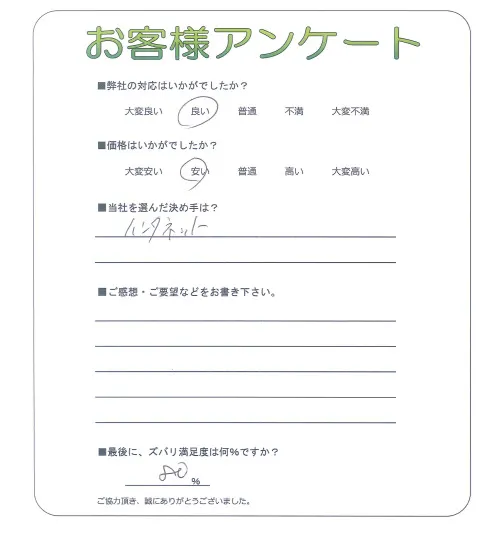 お客様アンケート
■弊社の対応はいかがでしたか？
大変良い 良い 普通 不満 大変不満
■価格はいかがでしたか？
大変安い 安い 普通 高い 大変高い
■当社を選んだ決め手は？
インタネット
■ご感想・ご要望などをお書き下さい。
■最後に、ズバリ満足度は何％ですか？
80 %
ご協力頂き、誠にありがとうございました。